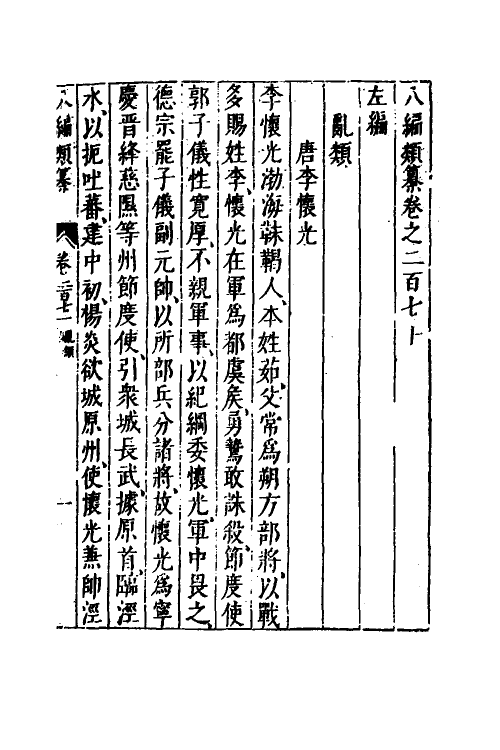 八編類纂卷之二百七十
左編
亂類
唐李懷光
李懷光渤海靺鞨人本姓茹父常爲朔方部將以戰
多賜姓李懷光在軍爲都虞矦勇鷙敢誅殺節度使
郭子儀性寛厚不親軍事以紀綱委懷光軍中畏之
德宗罷子儀副元帥以所部兵分諸將故懷光爲寧
慶晋絳慈隰等州節度使引衆城長武據原首臨涇
水以扼吐蕃建中初楊炎欲城原州使懷光兼帥涇
八編類纂 卷 亂類 一